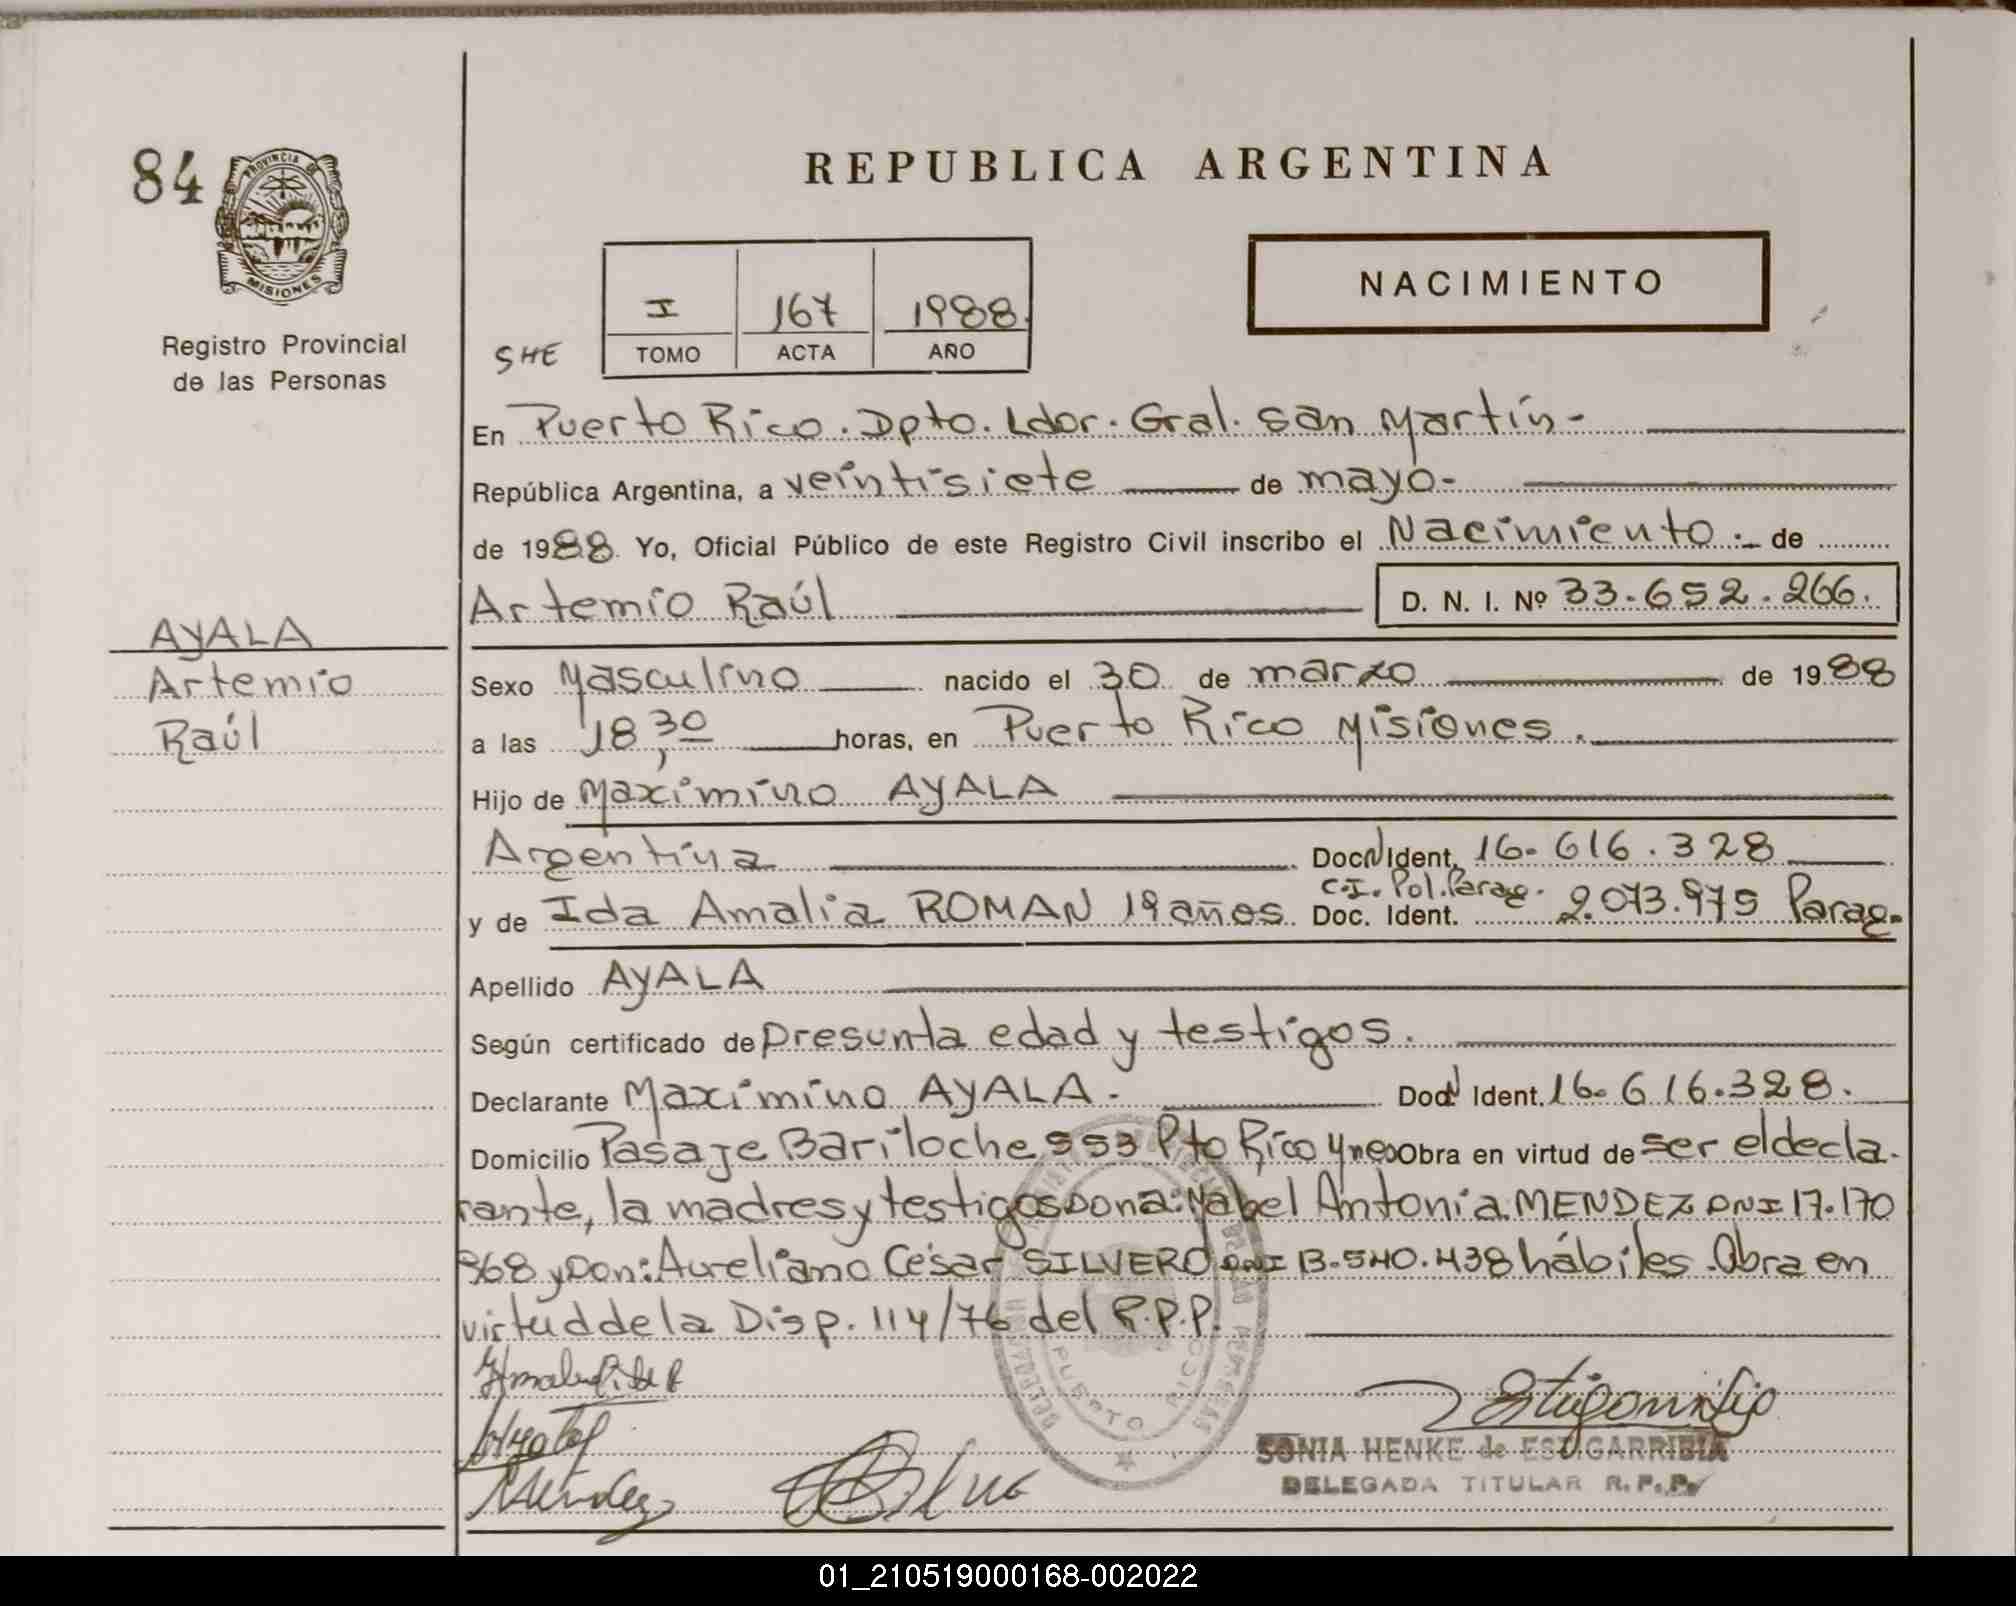 REPUBLICA ARGENTINA
84
PROVINCIA DE
MISIONES
Registro Provincial
de las Personas
NACIMIENTO
I 167 1988.
SHE TOMO ACTA AÑO
En Puerto Rico. Dpto. Ldor. Gral. San Martín-
República Argentina, a veintisiete de mayo-
de 1988. Yo, Oficial Público de este Registro Civil inscribo el Nacimiento.- de
Artemio Raúl D. N. I. Nº 33.652.266.
AYALA
Artemio
Raúl
Sexo Masculino nacido el 30 de marzo de 1988
a las 18,30 horas, en Puerto Rico Misiones.
Hijo de Maximino AYALA
Argentina Doc. N Ident. 16.616.328
C.I. Pol. Parag.
y de Ida Amalia ROMAN 19 años Doc. Ident. 2.073.975 Parag.
Apellido AYALA
Según certificado de presunta edad y testigos.
Declarante Maximino AYALA. Doc. N Ident. 16.616.328.
Domicilio Pasaje Bariloche 553 Pto Rico Mnes Obra en virtud de ser el decla-
rante, la madres y testigos Doña: Mabel Antonia MENDEZ DNI 17.170
968 y Don: Aureliano César SILVERO DNI 13.540.438 hábiles. Obra en
virtud de la Disp. 114/76 del R.P.P.
PUERTO RICO
Mendez
SONIA HENKE de ESTIGARRIBIA
DELEGADA TITULAR R.P.P.
01_210519000168-002022